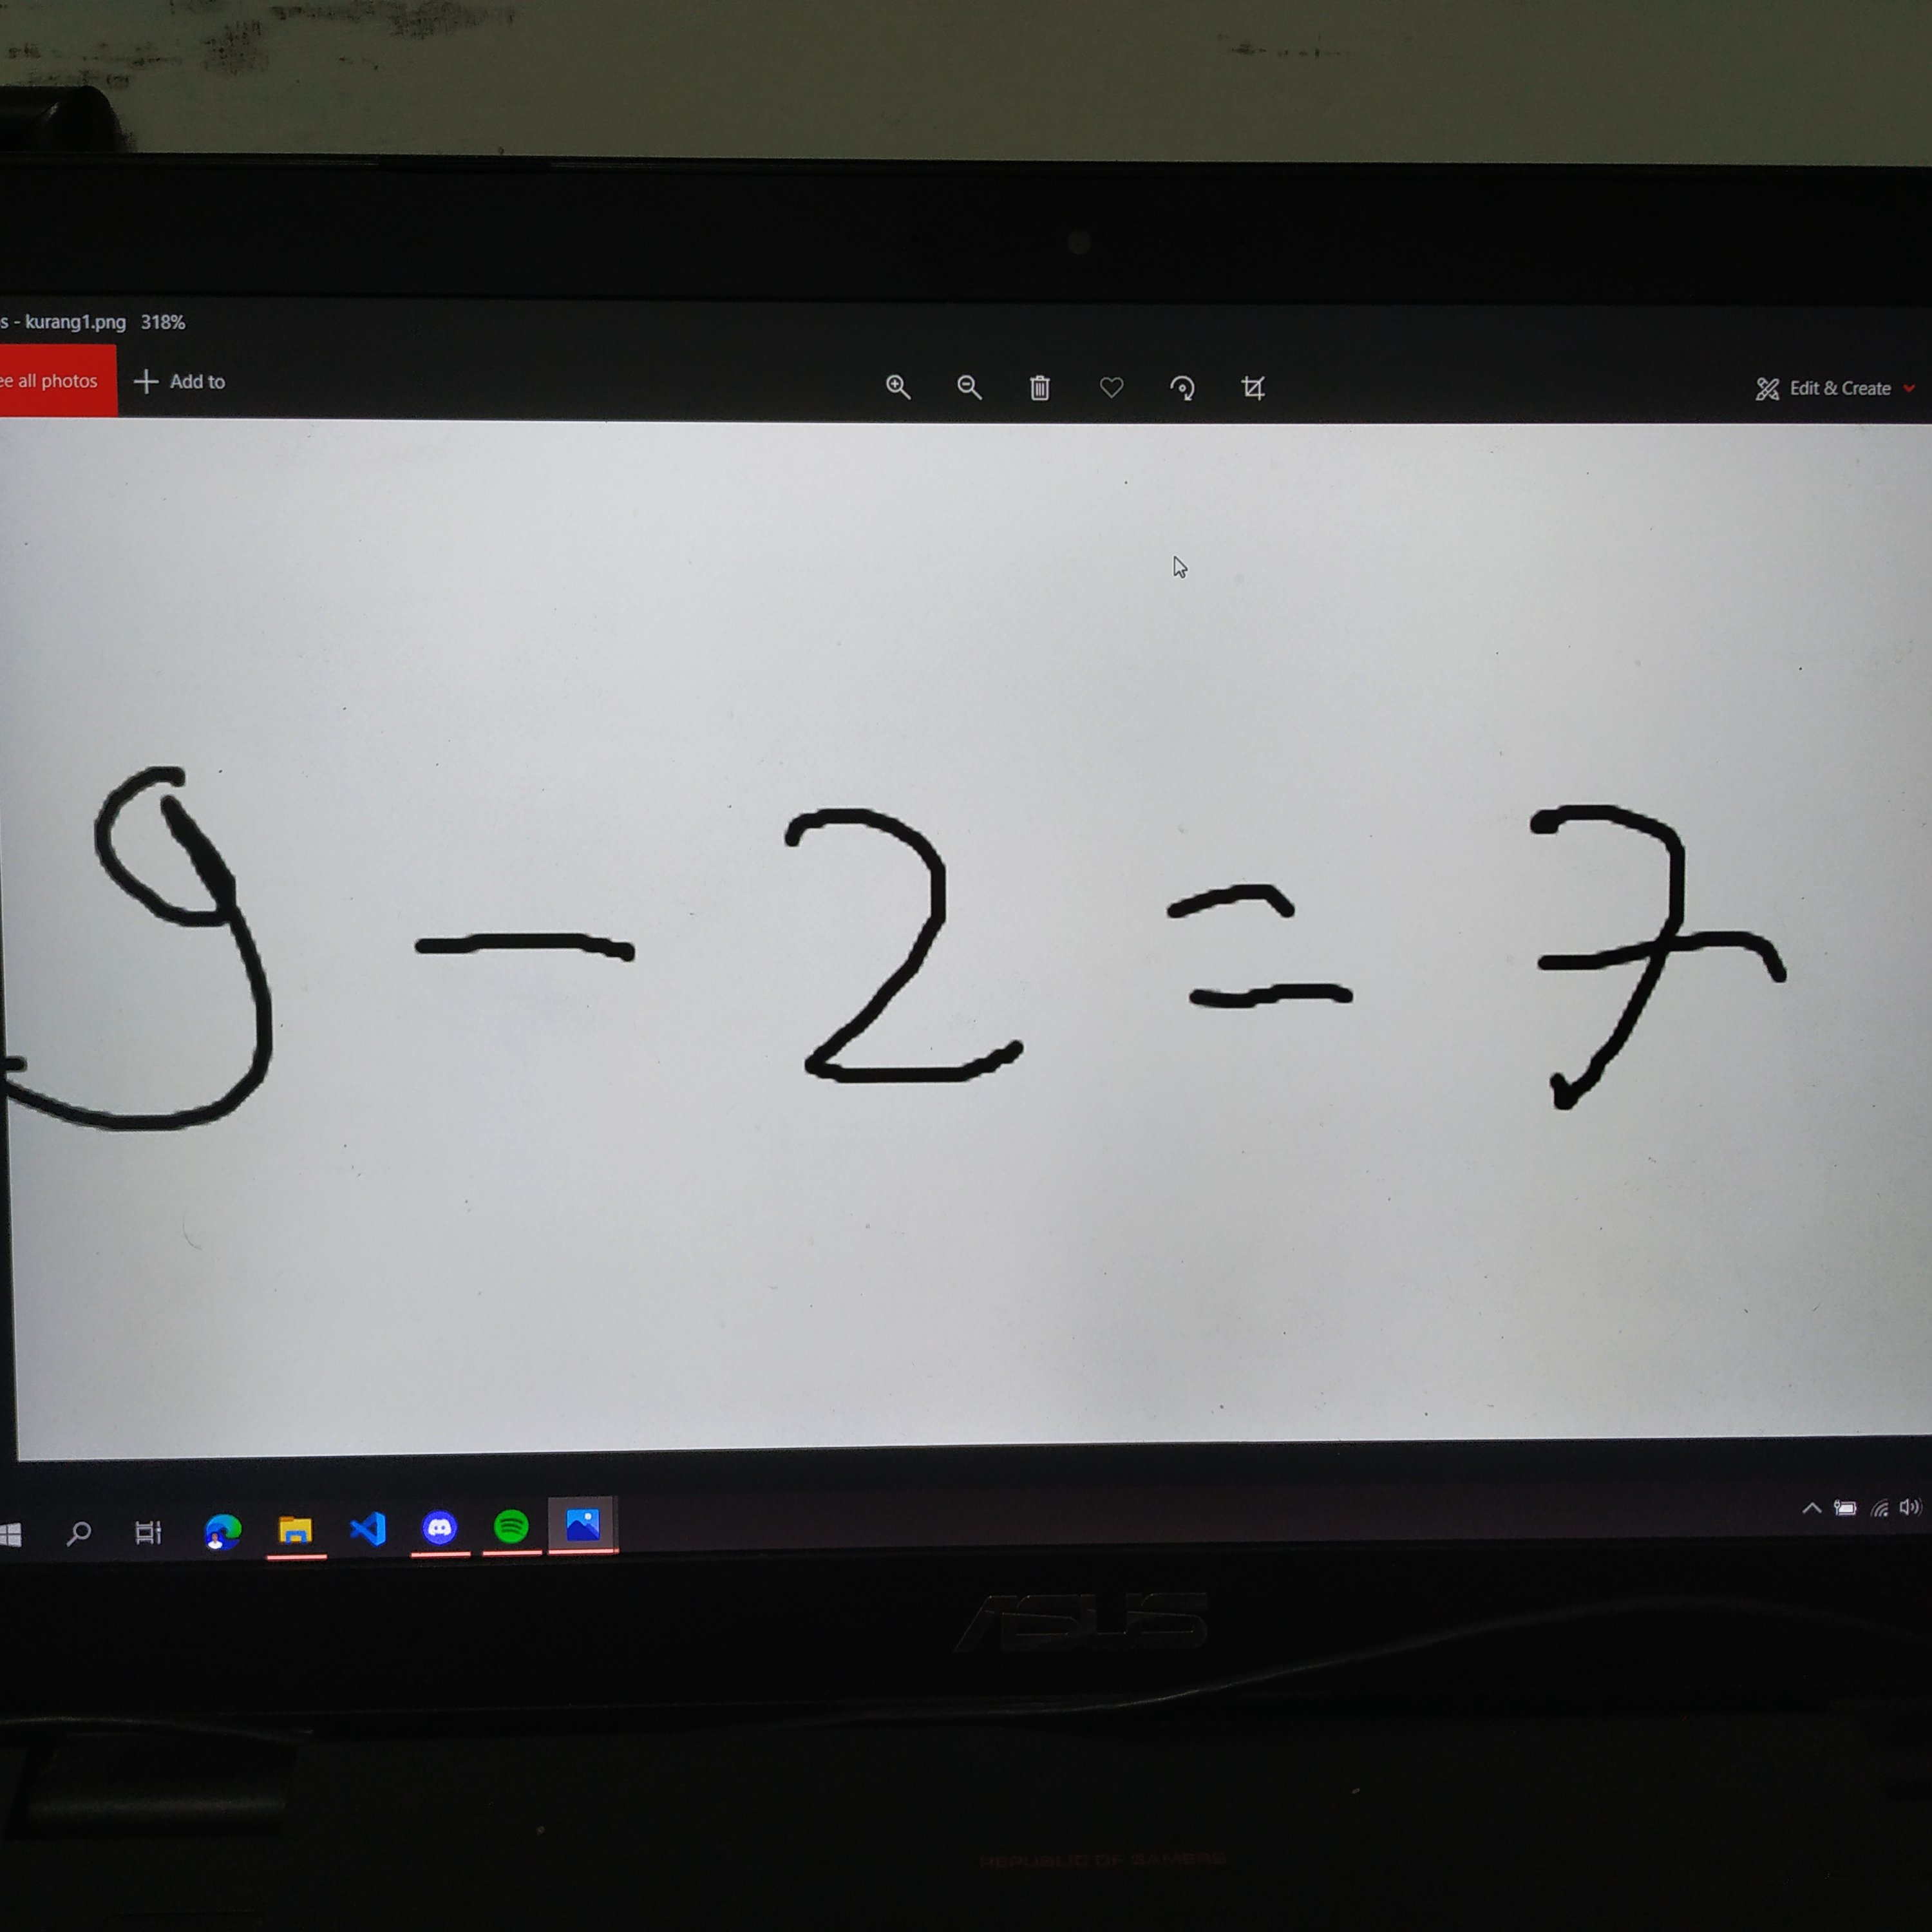 s - kurang1.png 318%
ee all photos Add to Edit & Create
9 - 2 = 7
ASUS
REPUBLIC OF GAMERS